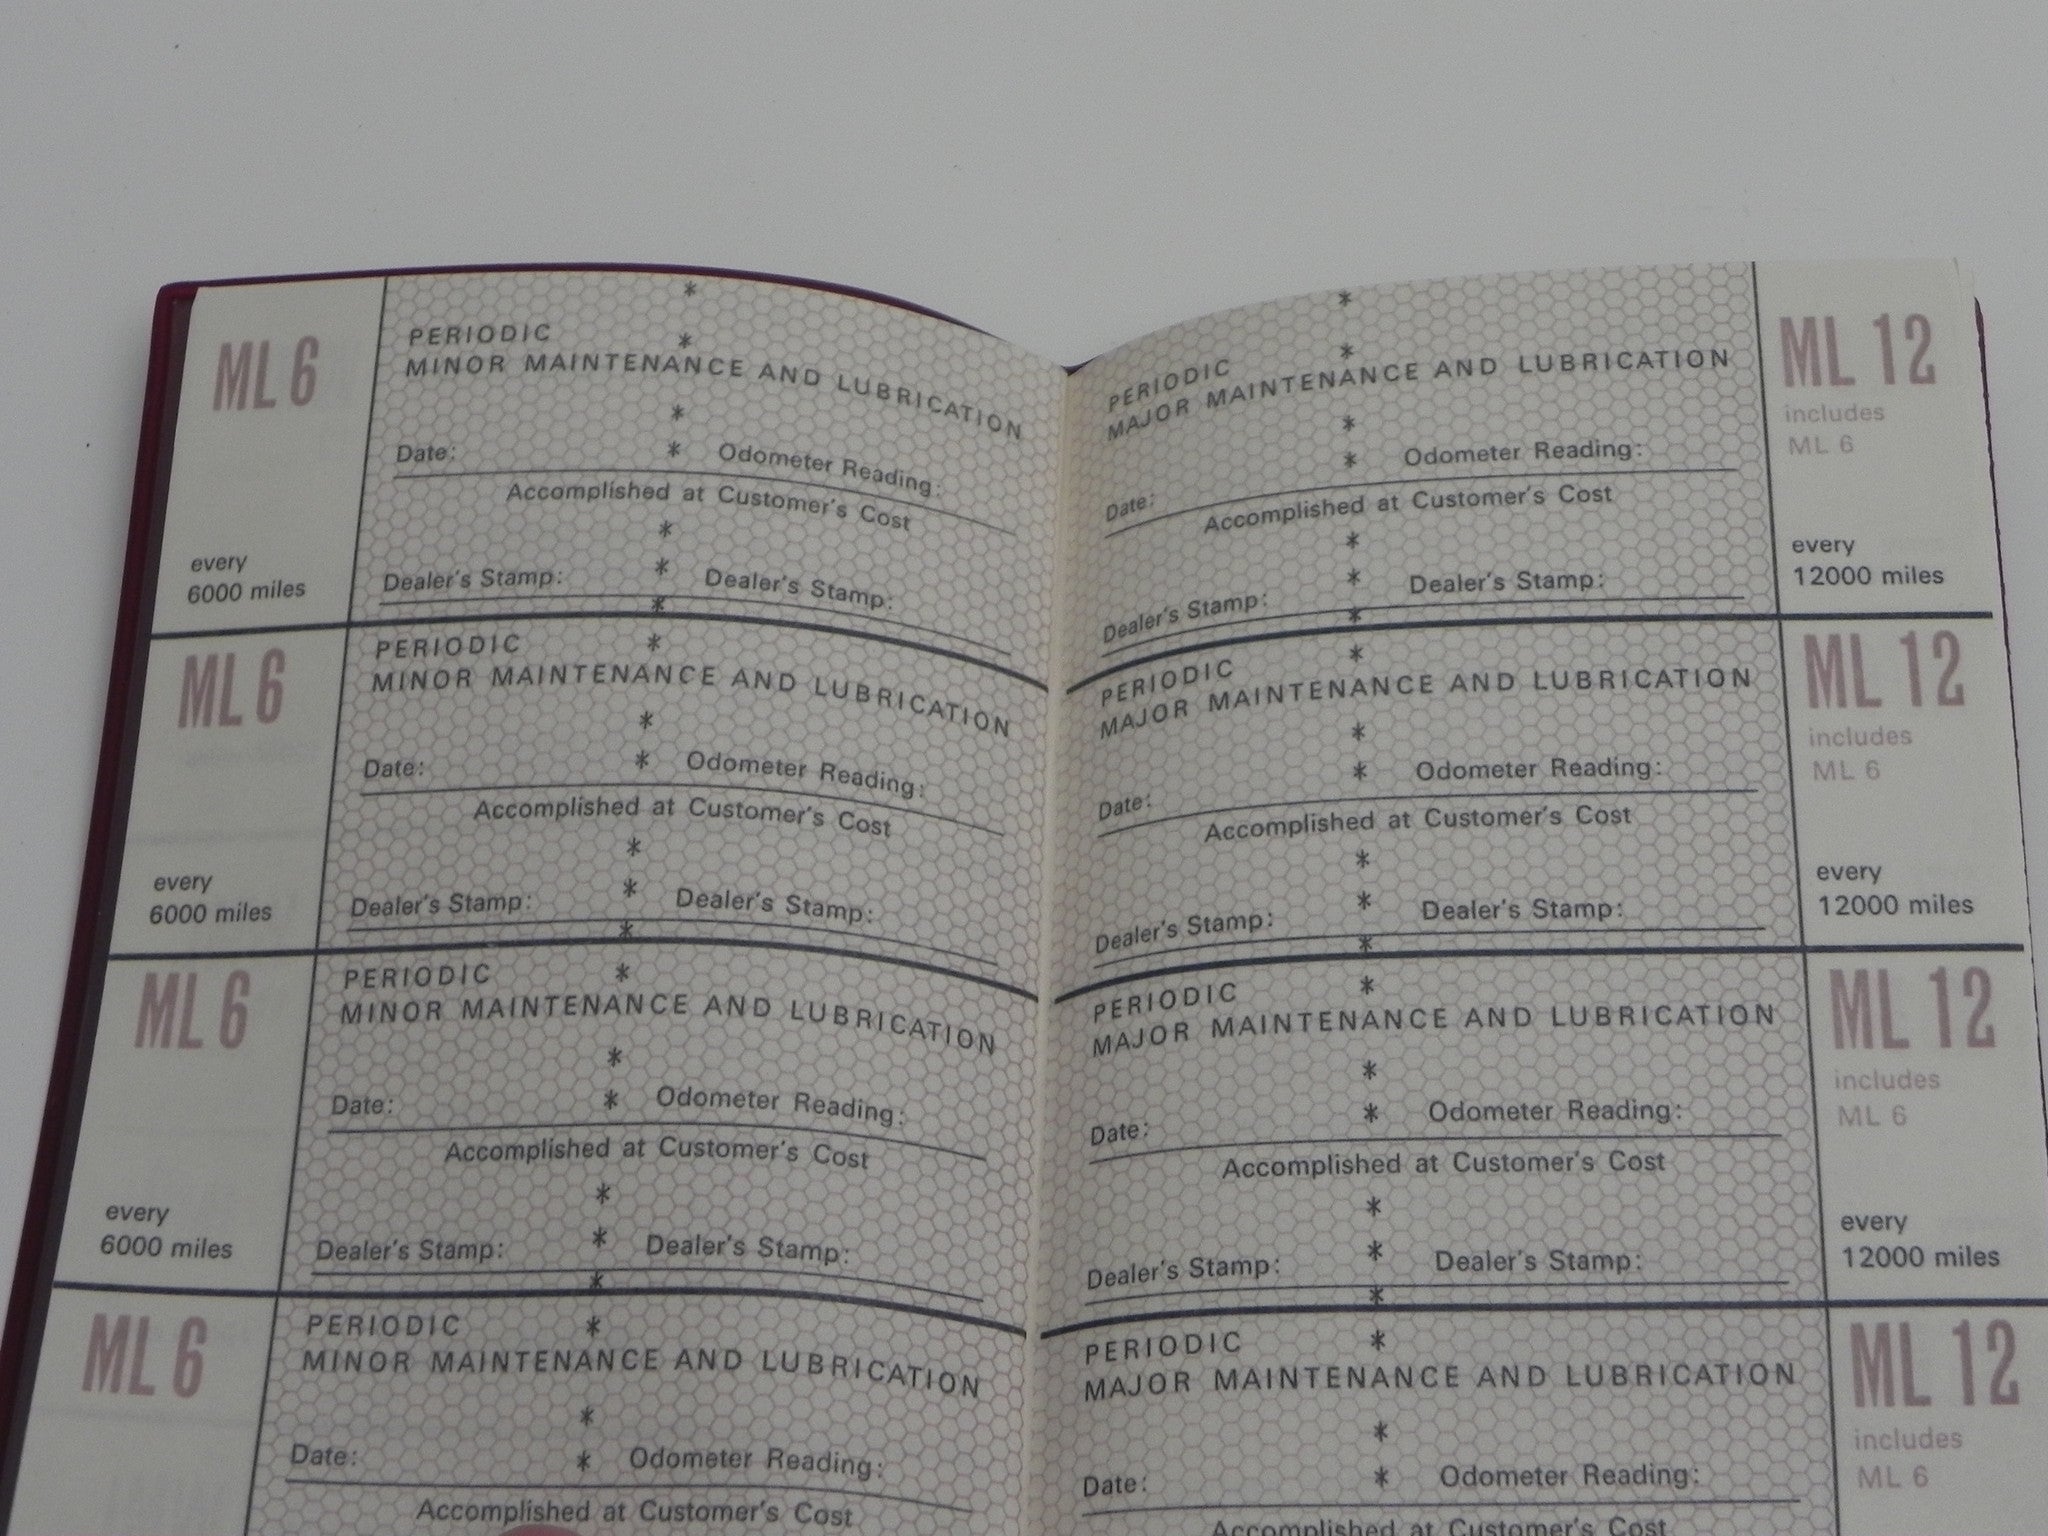 ML 6
PERIODIC
MINOR MAINTENANCE AND LUBRICATION
Date: Odometer Reading:
Accomplished at Customer's Cost
every
6000 miles
Dealer's Stamp: Dealer's Stamp:
ML 6
PERIODIC
MINOR MAINTENANCE AND LUBRICATION
Date: Odometer Reading:
Accomplished at Customer's Cost
every
6000 miles
Dealer's Stamp: Dealer's Stamp:
ML 6
PERIODIC
MINOR MAINTENANCE AND LUBRICATION
Date: Odometer Reading:
Accomplished at Customer's Cost
every
6000 miles
Dealer's Stamp: Dealer's Stamp:
ML 6
PERIODIC
MINOR MAINTENANCE AND LUBRICATION
Date: Odometer Reading:
Accomplished at Customer's Cost
PERIODIC
MAJOR MAINTENANCE AND LUBRICATION
ML 12
includes
ML 6
Date: Odometer Reading:
Accomplished at Customer's Cost
every
12000 miles
Dealer's Stamp: Dealer's Stamp:
PERIODIC
MAJOR MAINTENANCE AND LUBRICATION
ML 12
includes
ML 6
Date: Odometer Reading:
Accomplished at Customer's Cost
every
12000 miles
Dealer's Stamp: Dealer's Stamp:
PERIODIC
MAJOR MAINTENANCE AND LUBRICATION
ML 12
includes
ML 6
Date: Odometer Reading:
Accomplished at Customer's Cost
every
12000 miles
Dealer's Stamp: Dealer's Stamp:
PERIODIC
MAJOR MAINTENANCE AND LUBRICATION
ML 12
includes
ML 6
Date: Odometer Reading:
Accomplished at Customer's Cost